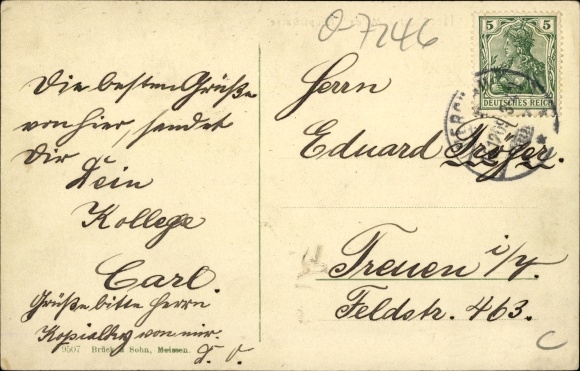 O-7246
5 5
DEUTSCHES REICH
Die besten Grüße
von hier, sendet
Dir
Dein
Kollege
Carl.
Grüße bitte Herrn
von mir.
D. O.
9507 Brück & Sohn, Meissen.
Herrn
Eduard
Treuen i/V.
Feldstr. 463.
C